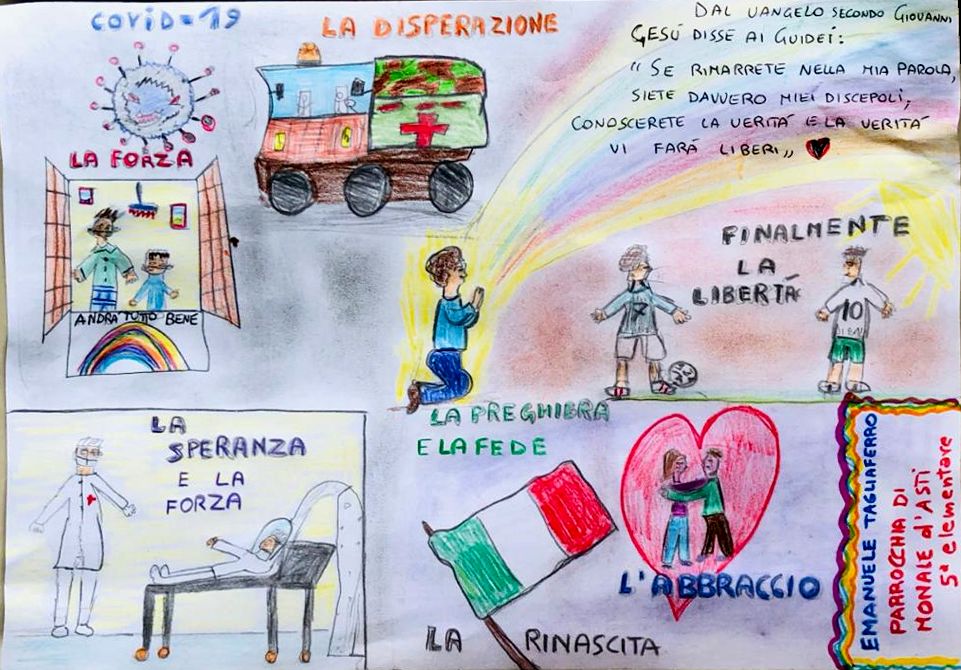 COVID-19
LA DISPERAZIONE
DAL VANGELO SECONDO GIOVANNI
GESÚ DISSE AI GUIDEI:
“SE RIMARRETE NELLA MIA PAROLA,
SIETE DAVVERO MIEI DISCEPOLI,
CONOSCERETE LA VERITÁ E LA VERITÁ
VI FARÁ LIBERI„
LA FORZA
ANDRÁ TUTTO BENE
FINALMENTE
LA
LIBERTÁ
7
10
LA PREGHIERA
E LA FEDE
LA
SPERANZA
E LA
FORZA
L'ABBRACCIO
LA RINASCITA
EMANUELE TAGLIAFERRO
PARROCCHIA DI
MONALE d'ASTI
5ª elementare